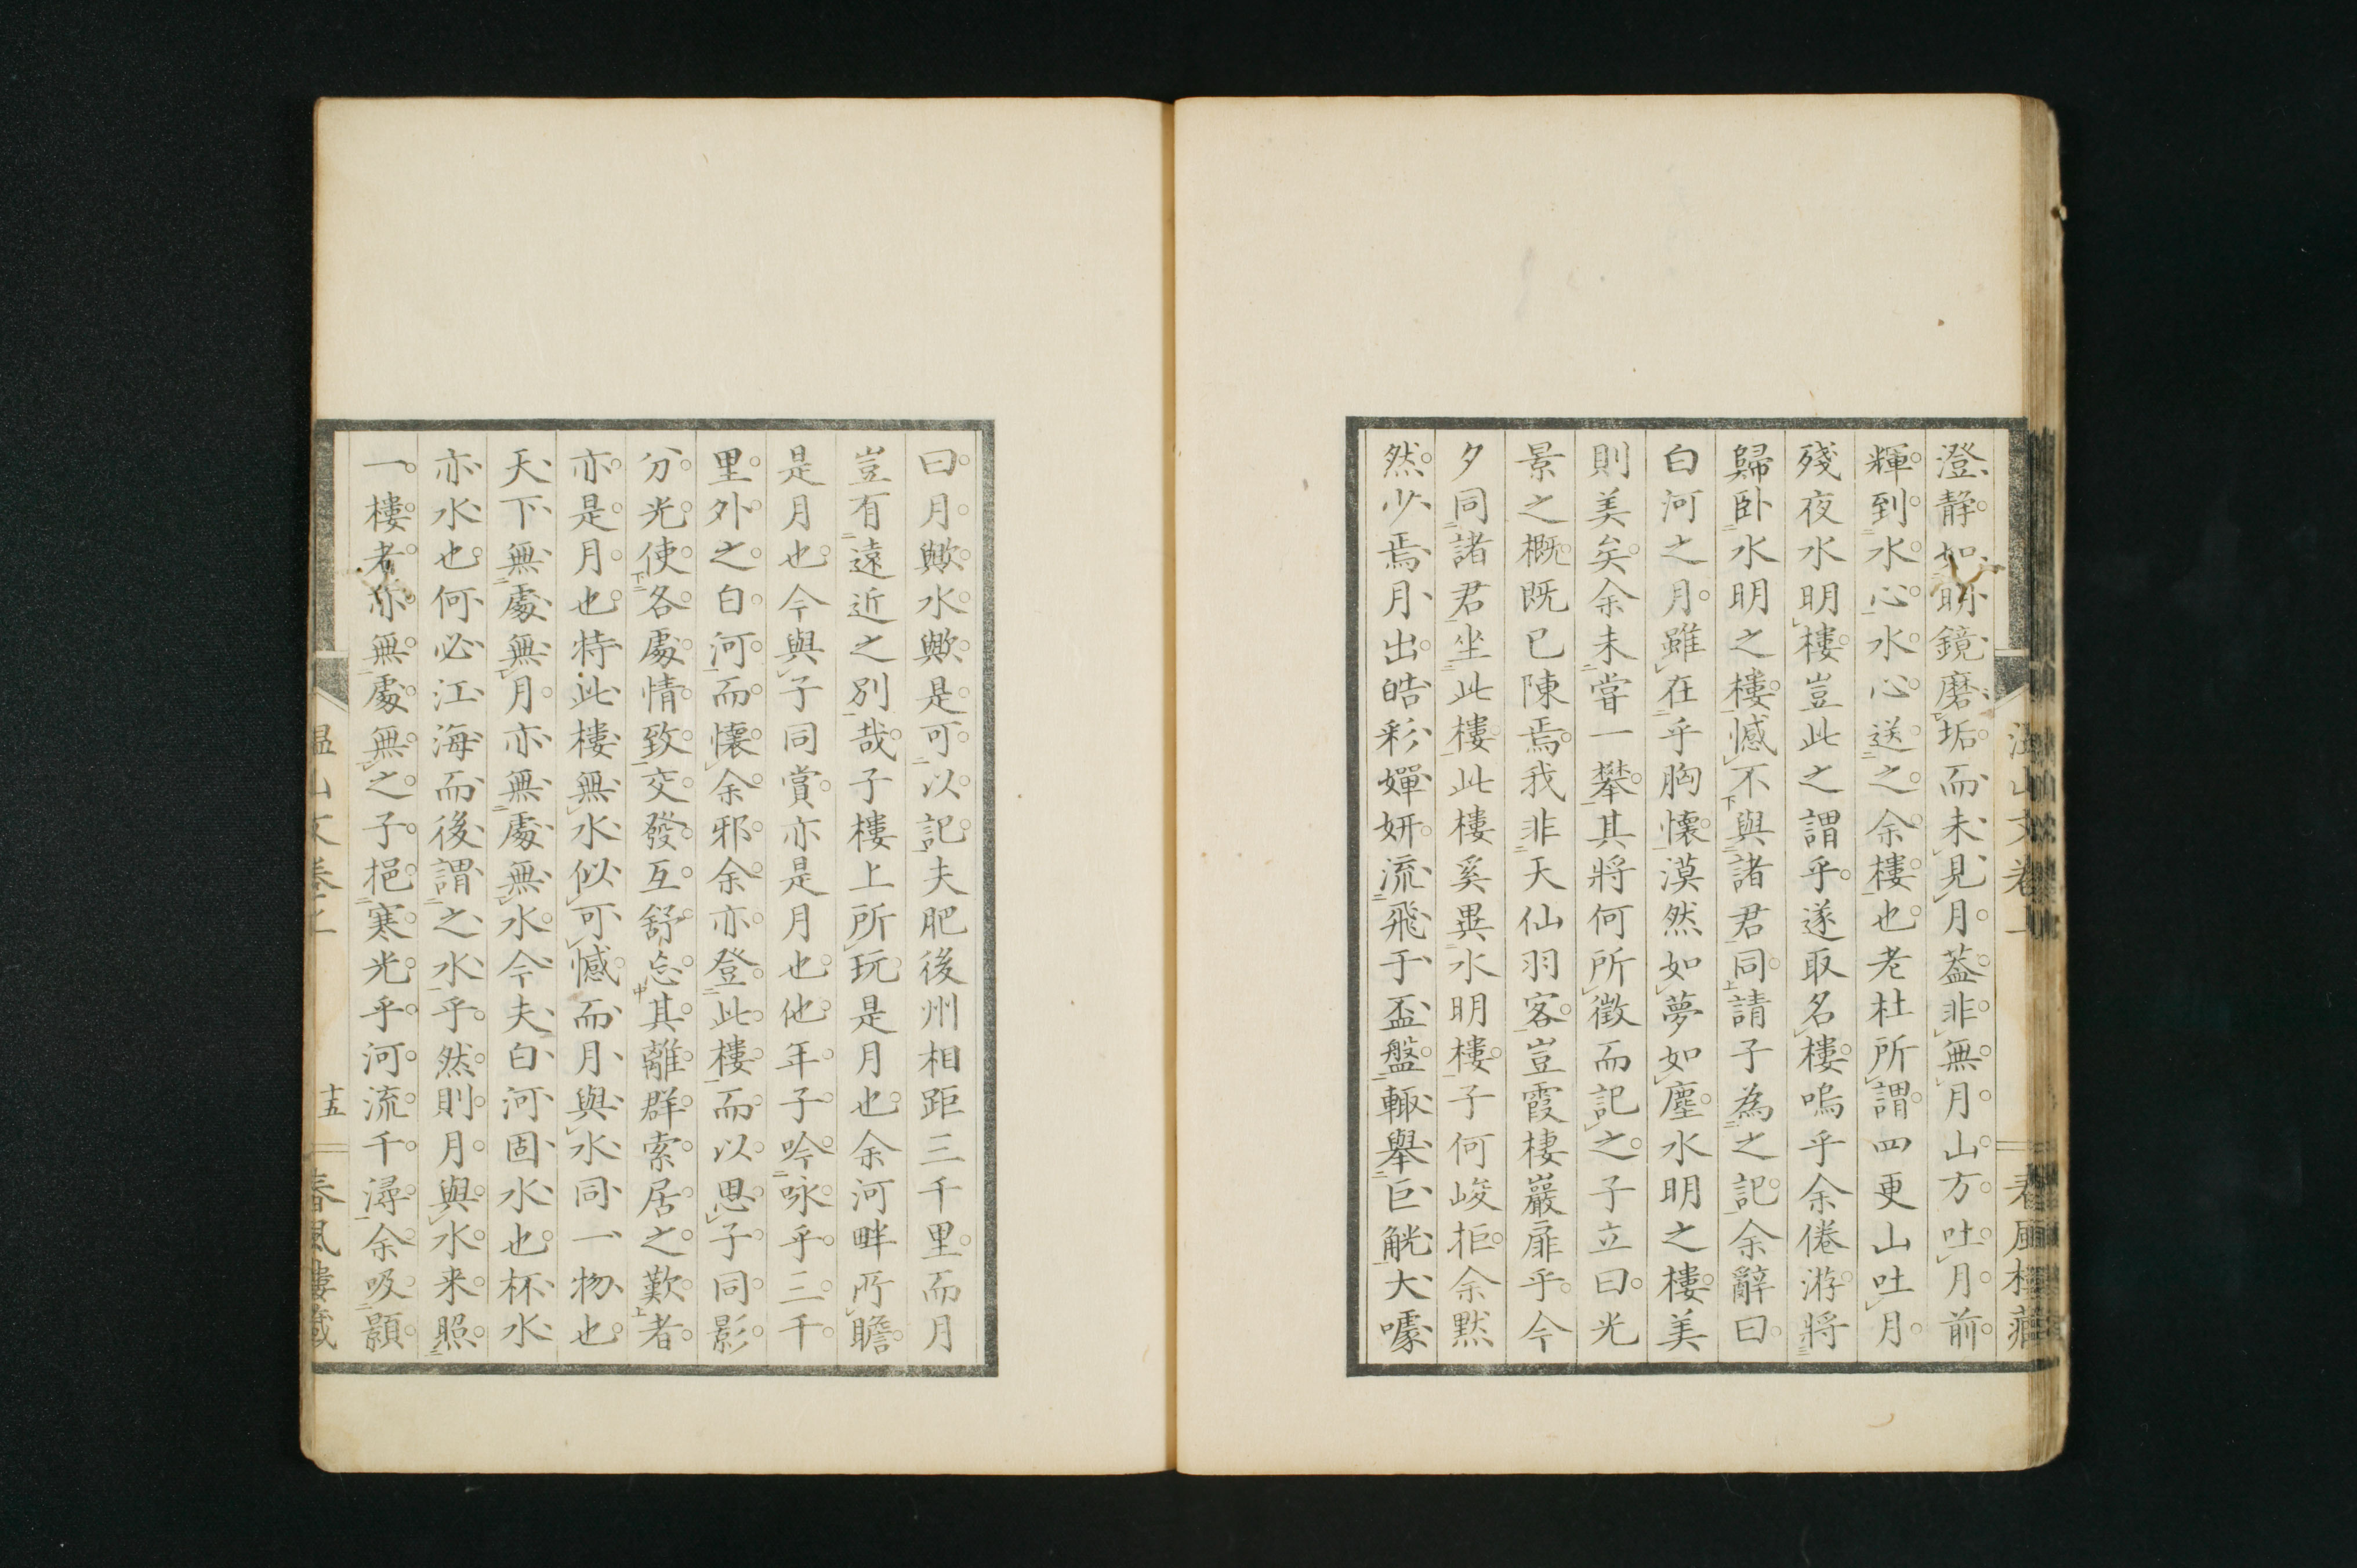 澄靜如明鏡磨垢而未見月蓋非無月山方吐月前
輝到水心水心送之余樓也老杜所謂四更山吐月
殘夜水明樓豈此之謂乎遂取名樓嗚乎余倦游將
歸卧水明之樓憾不與諸君同請子為之記余辭曰
白河之月雖在乎胸懷漠然如夢如塵水明之樓美
則美矣余未嘗一攀其將何所徵而記之子立曰光
景之概既已陳焉我非天仙羽客豈霞棲巖扉乎今
夕同諸君坐此樓此樓奚異水明樓子何峻拒余默
然少焉月出皓彩嬋妍流飛于盃盤輙舉巨觥大噱
曰月歟水歟是可以記夫肥後州相距三千里而月
豈有遠近之別哉子樓上所玩是月也余河畔所瞻
是月也今與子同賞亦是月也他年子吟咏乎三千
里外之白河而懷余邪余亦登此樓而以思子同影
分光使各處情致交發互舒忘其離群索居之歎者
亦是月也特此樓無水似可憾而月與水同一物也
天下無處無月亦無處無水今夫白河固水也杯水
亦水也何必江海而後謂之水乎然則月與水来照
一樓者亦無處無之子挹寒光乎河流千潯余吸顥
温山文卷一
十五
春風樓藏